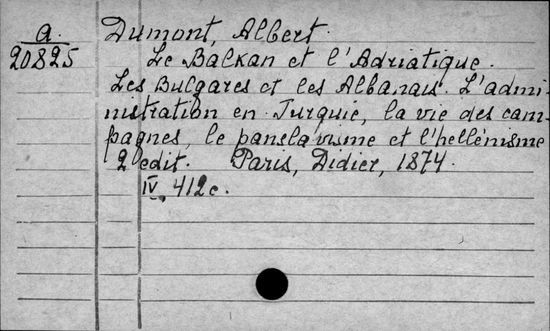 a.
20825
Dumont, Albert.
Le Balkan et l'Adriatique.
Les Bulgares et les Albanais. L'admi-
nistration en Turquie, la vie des cam-
pagnes, le panslavisme et l'hellénisme
2 edit. Paris, Didier, 1874.
IV, 412 c.